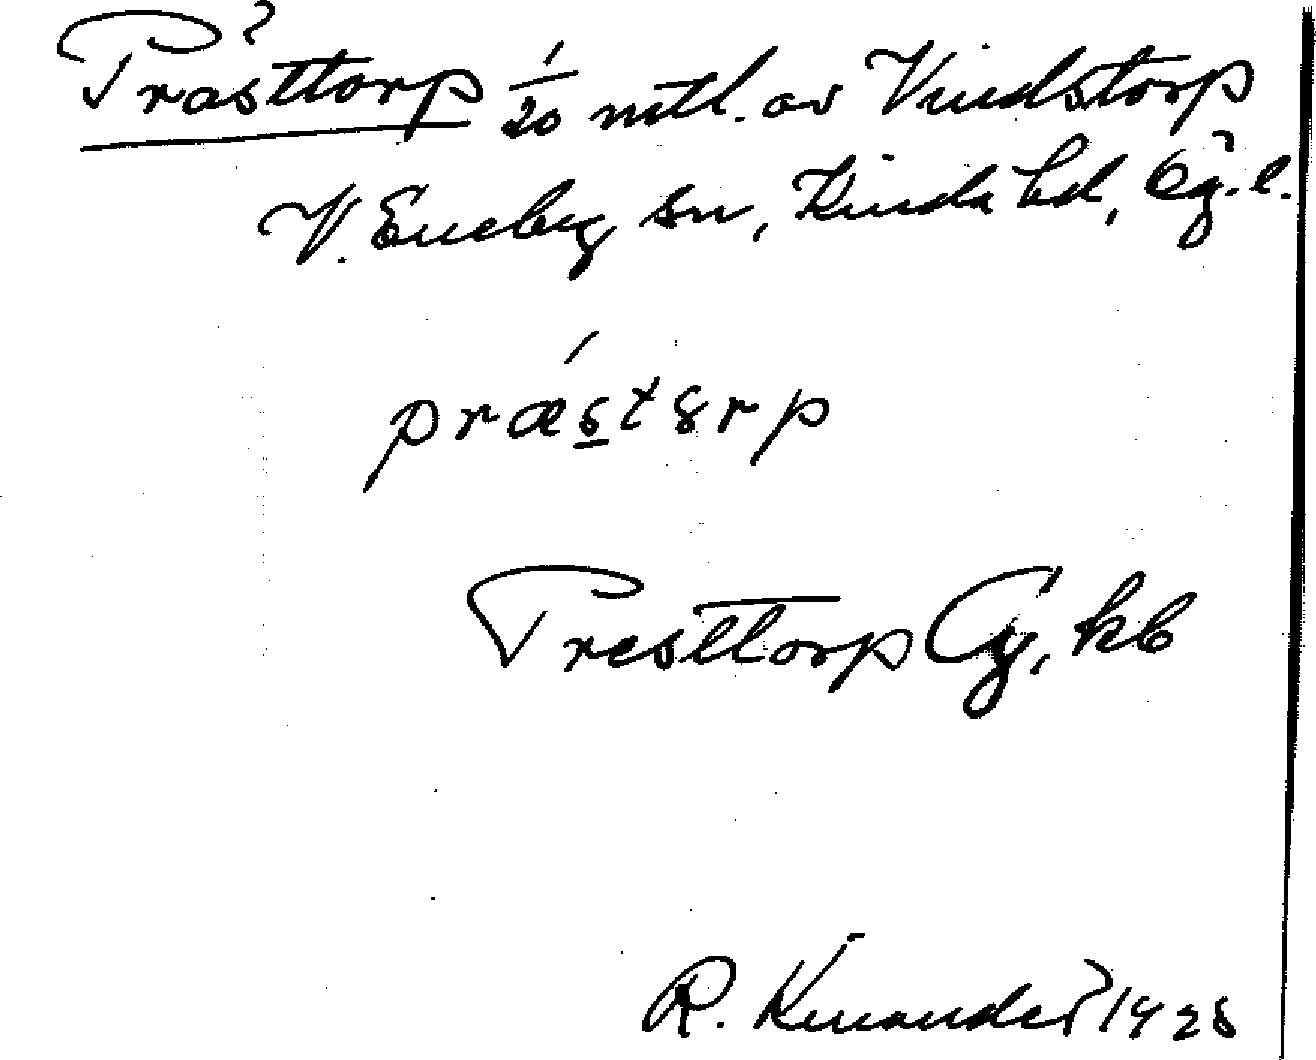 Prästtorp 1/20 mtl. av Vindstorp
V. Eneby sn, Kinda hd, Ög. l.
præstɞrp
Presttorp Gg, kb
R. Kinander 1928